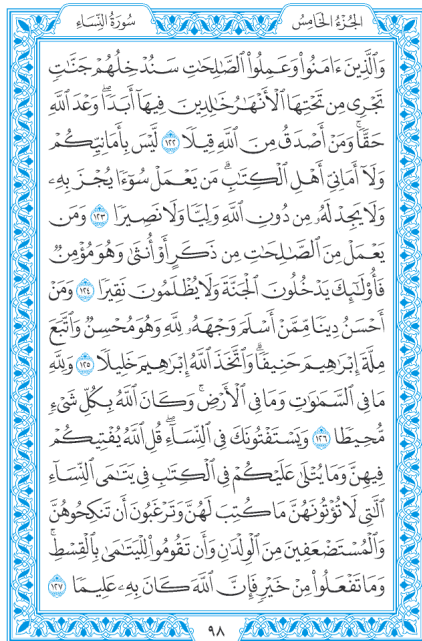 سُورَةُ النِّسَاءِ
الجُزْءُ الخَامِسُ
وَٱلَّذِينَ ءَامَنُوا۟ وَعَمِلُوا۟ ٱلصَّٰلِحَٰتِ سَنُدْخِلُهُمْ جَنَّٰتٍ
تَجْرِى مِن تَحْتِهَا ٱلْأَنْهَٰرُ خَٰلِدِينَ فِيهَآ أَبَدًا ۖ وَعْدَ ٱللَّهِ
حَقًّا ۚ وَمَنْ أَصْدَقُ مِنَ ٱللَّهِ قِيلًا ١٢٢ لَّيْسَ بِأَمَانِيِّكُمْ
وَلَآ أَمَانِىِّ أَهْلِ ٱلْكِتَٰبِ ۗ مَن يَعْمَلْ سُوٓءًا يُجْزَ بِهِۦ
وَلَا يَجِدْ لَهُۥ مِن دُونِ ٱللَّهِ وَلِيًّا وَلَا نَصِيرًا ١٢٣ وَمَن
يَعْمَلْ مِنَ ٱلصَّٰلِحَٰتِ مِن ذَكَرٍ أَوْ أُنثَىٰ وَهُوَ مُؤْمِنٌ
فَأُو۟لَٰٓئِكَ يَدْخُلُونَ ٱلْجَنَّةَ وَلَا يُظْلَمُونَ نَقِيرًا ١٢٤ وَمَنْ
أَحْسَنُ دِينًا مِّمَّنْ أَسْلَمَ وَجْهَهُۥ لِلَّهِ وَهُوَ مُحْسِنٌ وَٱتَّبَعَ
مِلَّةَ إِبْرَٰهِيمَ حَنِيفًا ۗ وَٱتَّخَذَ ٱللَّهُ إِبْرَٰهِيمَ خَلِيلًا ١٢٥ وَلِلَّهِ
مَا فِى ٱلسَّمَٰوَٰتِ وَمَا فِى ٱلْأَرْضِ ۚ وَكَانَ ٱللَّهُ بِكُلِّ شَىْءٍ
مُّحِيطًا ١٢٦ وَيَسْتَفْتُونَكَ فِى ٱلنِّسَآءِ ۖ قُلِ ٱللَّهُ يُفْتِيكُمْ
فِيهِنَّ وَمَا يُتْلَىٰ عَلَيْكُمْ فِى ٱلْكِتَٰبِ فِى يَتَٰمَى ٱلنِّسَآءِ
ٱلَّٰتِى لَا تُؤْتُونَهُنَّ مَا كُتِبَ لَهُنَّ وَتَرْغَبُونَ أَن تَنكِحُوهُنَّ
وَٱلْمُسْتَضْعَفِينَ مِنَ ٱلْوِلْدَٰنِ وَأَن تَقُومُوا۟ لِلْيَتَٰمَىٰ بِٱلْقِسْطِ ۚ
وَمَا تَفْعَلُوا۟ مِنْ خَيْرٍ فَإِنَّ ٱللَّهَ كَانَ بِهِۦ عَلِيمًا ١٢٧
٩٨